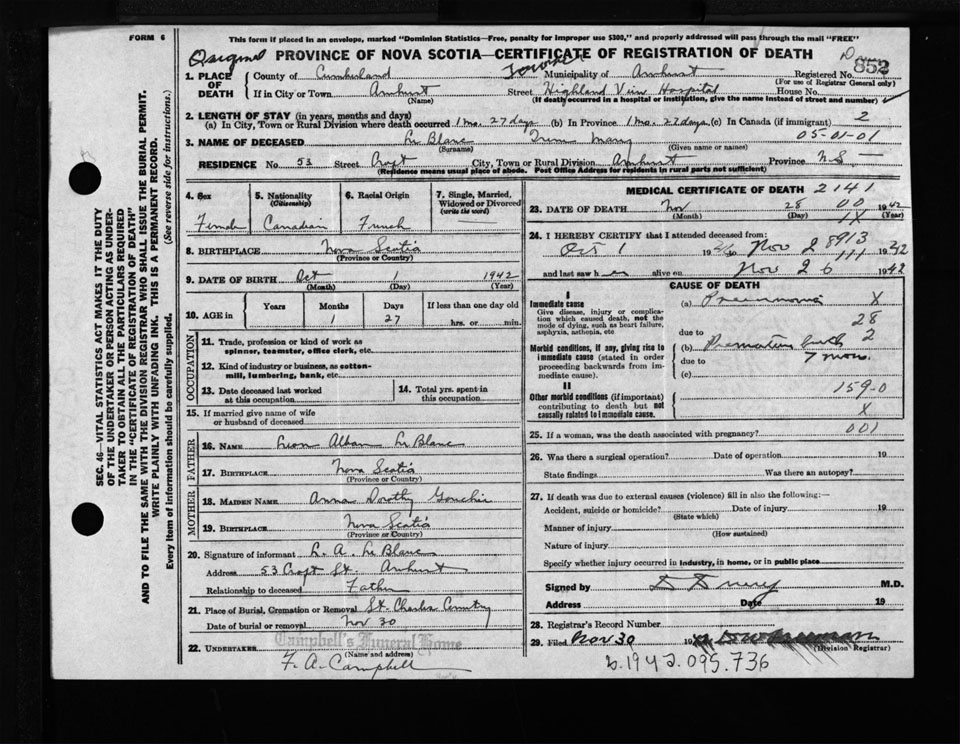 This form if placed in an envelope, marked "Dominion Statistics—Free, penalty for improper use $300," and properly addressed will pass through the mail "FREE"
FORM 6
Original
PROVINCE OF NOVA SCOTIA—CERTIFICATE OF REGISTRATION OF DEATH
852
1. PLACE OF DEATH
County of Cumberland
Municipality of Amherst
Registered No.
(For use of Registrar General only)
If in City or Town Amherst
(Name)
Street Highland View Hospital House No.
(If death occurred in a hospital or institution, give the name instead of street and number)
2. LENGTH OF STAY (in years, months and days)
(a) In City, Town or Rural Division where death occurred 1 mo. 27 days (b) In Province 1 mo. 27 days (c) In Canada (if immigrant) 2
05-01-01
3. NAME OF DECEASED Le Blanc Mary
(Surname) (Given name or names)
RESIDENCE No. 53 Street Croft City, Town or Rural Division Amherst Province N.S.
(Residence means usual place of abode. Post Office Address for residents in rural parts not sufficient)
4. Sex
Female
5. Nationality
(Citizenship)
Canadian
6. Racial Origin
French
7. Single, Married, Widowed or Divorced
(write the word)
8. BIRTHPLACE Nova Scotia
(Province or Country)
9. DATE OF BIRTH Oct 1 1942
(Month) (Day) (Year)
10. AGE in
Years Months Days If less than one day old
1 27 hrs. or min.
OCCUPATION
11. Trade, profession or kind of work as
spinner, teamster, office clerk, etc.
12. Kind of industry or business, as cotton-
mill, lumbering, bank, etc.
13. Date deceased last worked
at this occupation
14. Total yrs. spent in
this occupation
15. If married give name of wife
or husband of deceased
FATHER
16. NAME Leon Alban Le Blanc
17. BIRTHPLACE Nova Scotia
(Province or Country)
MOTHER
18. MAIDEN NAME Anna Dorothy
19. BIRTHPLACE Nova Scotia
(Province or Country)
20. Signature of informant L. A. Le Blanc
Address 53 Croft St. Amherst
Relationship to deceased Father
21. Place of Burial, Cremation or Removal St. Charles Cemetery
Date of burial or removal Nov 30
Campbell's Funeral Home
22. UNDERTAKER
(Name and address)
F. A. Campbell
MEDICAL CERTIFICATE OF DEATH 2141
23. DATE OF DEATH Nov 28 00 1942
(Month) (Day) IX (Year)
24. I HEREBY CERTIFY that I attended deceased from:
8913
Oct 1 1942 to Nov 2 111 1942
and last saw her alive on Nov 26 1942
CAUSE OF DEATH
I
Immediate cause
Give disease, injury or complica-
tion which caused death, not the
mode of dying, such as heart failure,
asphyxia, asthenia, etc
(a) Pneumonia X
28
due to
Morbid conditions, if any, giving rise to
immediate cause (stated in order
proceeding backwards from im-
mediate cause).
(b) Premature birth 2
due to 7 mos.
(c)
II
Other morbid conditions (if important)
contributing to death but not
causally related to immediate cause.
159-0
X
25. If a woman, was the death associated with pregnancy? 001
26. Was there a surgical operation? Date of operation 19
State findings Was there an autopsy?
27. If death was due to external causes (violence) fill in also the following:—
Accident, suicide or homicide? Date of injury 19
(State which)
Manner of injury
(How sustained)
Nature of injury
Specify whether injury occurred in industry, in home, or in public place
Signed by M.D.
Address Date 19
28. Registrar's Record Number
29. Filed Nov 30 19
(Division Registrar)
b.1942.095.736
SEC. 46—VITAL STATISTICS ACT MAKES IT THE DUTY
OF THE UNDERTAKER OR PERSON ACTING AS UNDER-
TAKER TO OBTAIN ALL THE PARTICULARS REQUIRED
IN THE "CERTIFICATE OF REGISTRATION OF DEATH"
AND TO FILE THE SAME WITH THE DIVISION REGISTRAR WHO SHALL ISSUE THE BURIAL PERMIT.
WRITE PLAINLY WITH UNFADING INK. THIS IS A PERMANENT RECORD.
Every item of information should be carefully supplied. (See reverse side for instructions.)